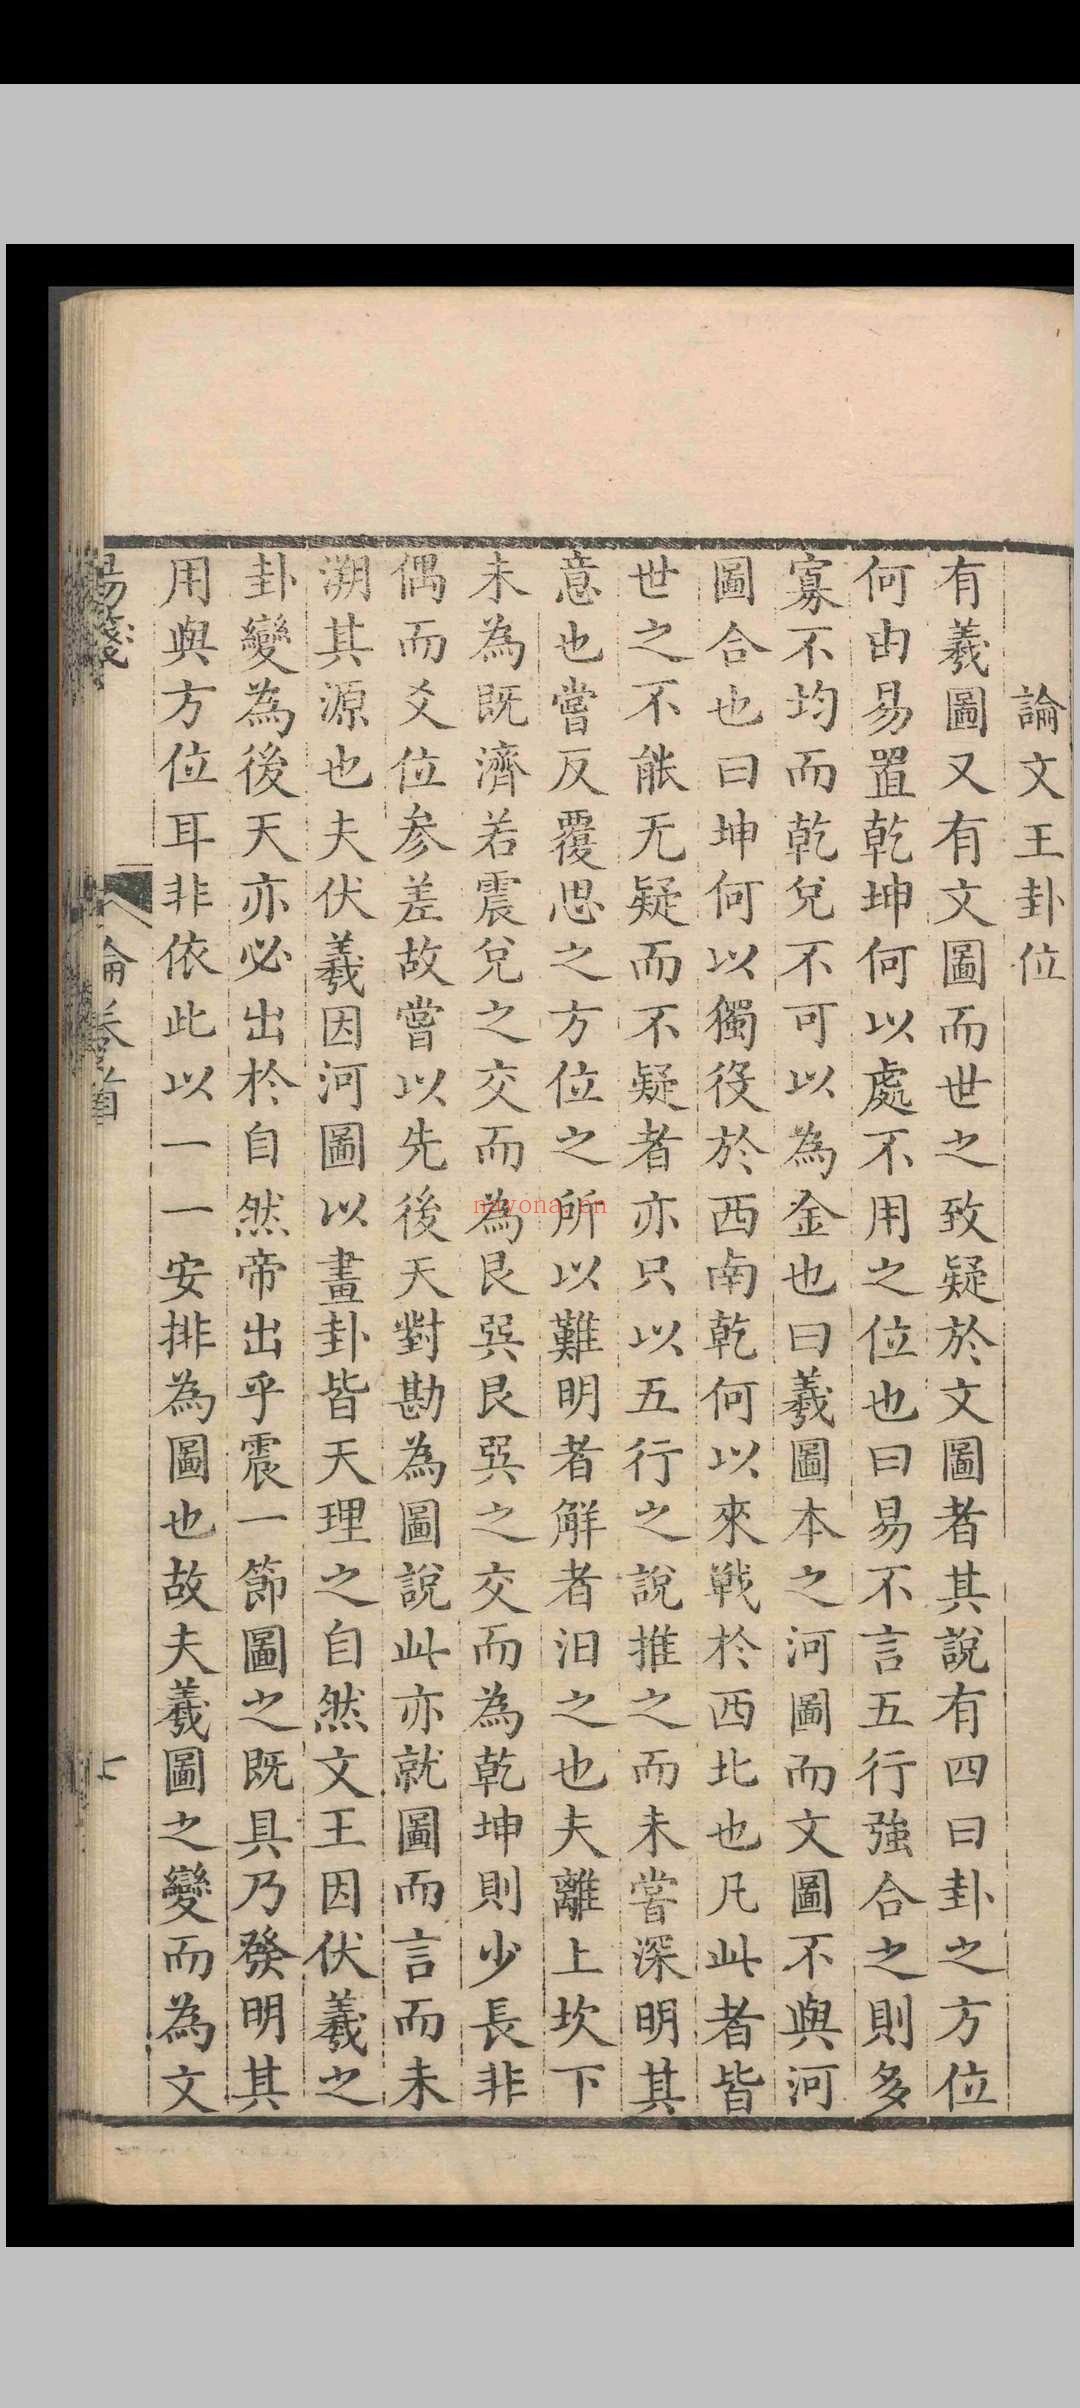 論文王卦位
有羲圖又有文圖而世之致疑於文圖者其說有四曰卦之方位
何由易置乾坤何以處不用之位也曰易不言五行強合之則多
寡不均而乾兌不可以為金也曰羲圖本之河圖而文圖不與河
圖合也曰坤何以獨役於西南乾何以來戰於西北也凡此者皆
世之不能无疑而不疑者亦只以五行之說推之而未嘗深明其
意也嘗反覆思之方位之所以難明者解者汨之也夫離上坎下
未為既濟若震兌之交而為艮巽艮巽之交而為乾坤則少長非
偶而爻位參差故嘗以先後天對勘為圖說此亦就圖而言而未
溯其源也夫伏羲因河圖以畫卦皆天理之自然文王因伏羲之
卦變為後天亦必出於自然帝出乎震一節圖之既具乃發明其
用與方位耳非依此以一一安排為圖也故夫羲圖之變而為文
易箋
論卷首
七
nayona.cn